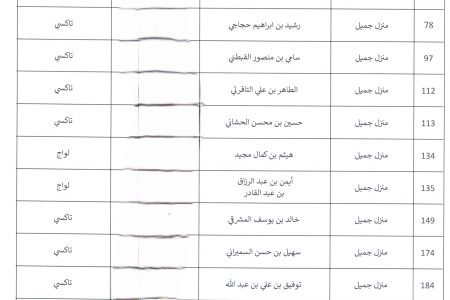 78 منزل جميل رشيد بن ابراهيم حجاجي تاكسي
97 منزل جميل سامي بن منصور القيطني تاكسي
112 منزل جميل الطاهر بن علي التاقرتي تاكسي
113 منزل جميل حسين بن محسن الحشاني تاكسي
134 منزل جميل هيثم بن كمال مجيد لواج
135 منزل جميل أيمن بن عبد الرزاق لواج
بن عبد القادر
149 منزل جميل خالد بن يوسف المشرقي تاكسي
174 منزل جميل سهيل بن حسن السميراني تاكسي
184 منزل جميل توفيق بن علي بن عبد الله تاكسي